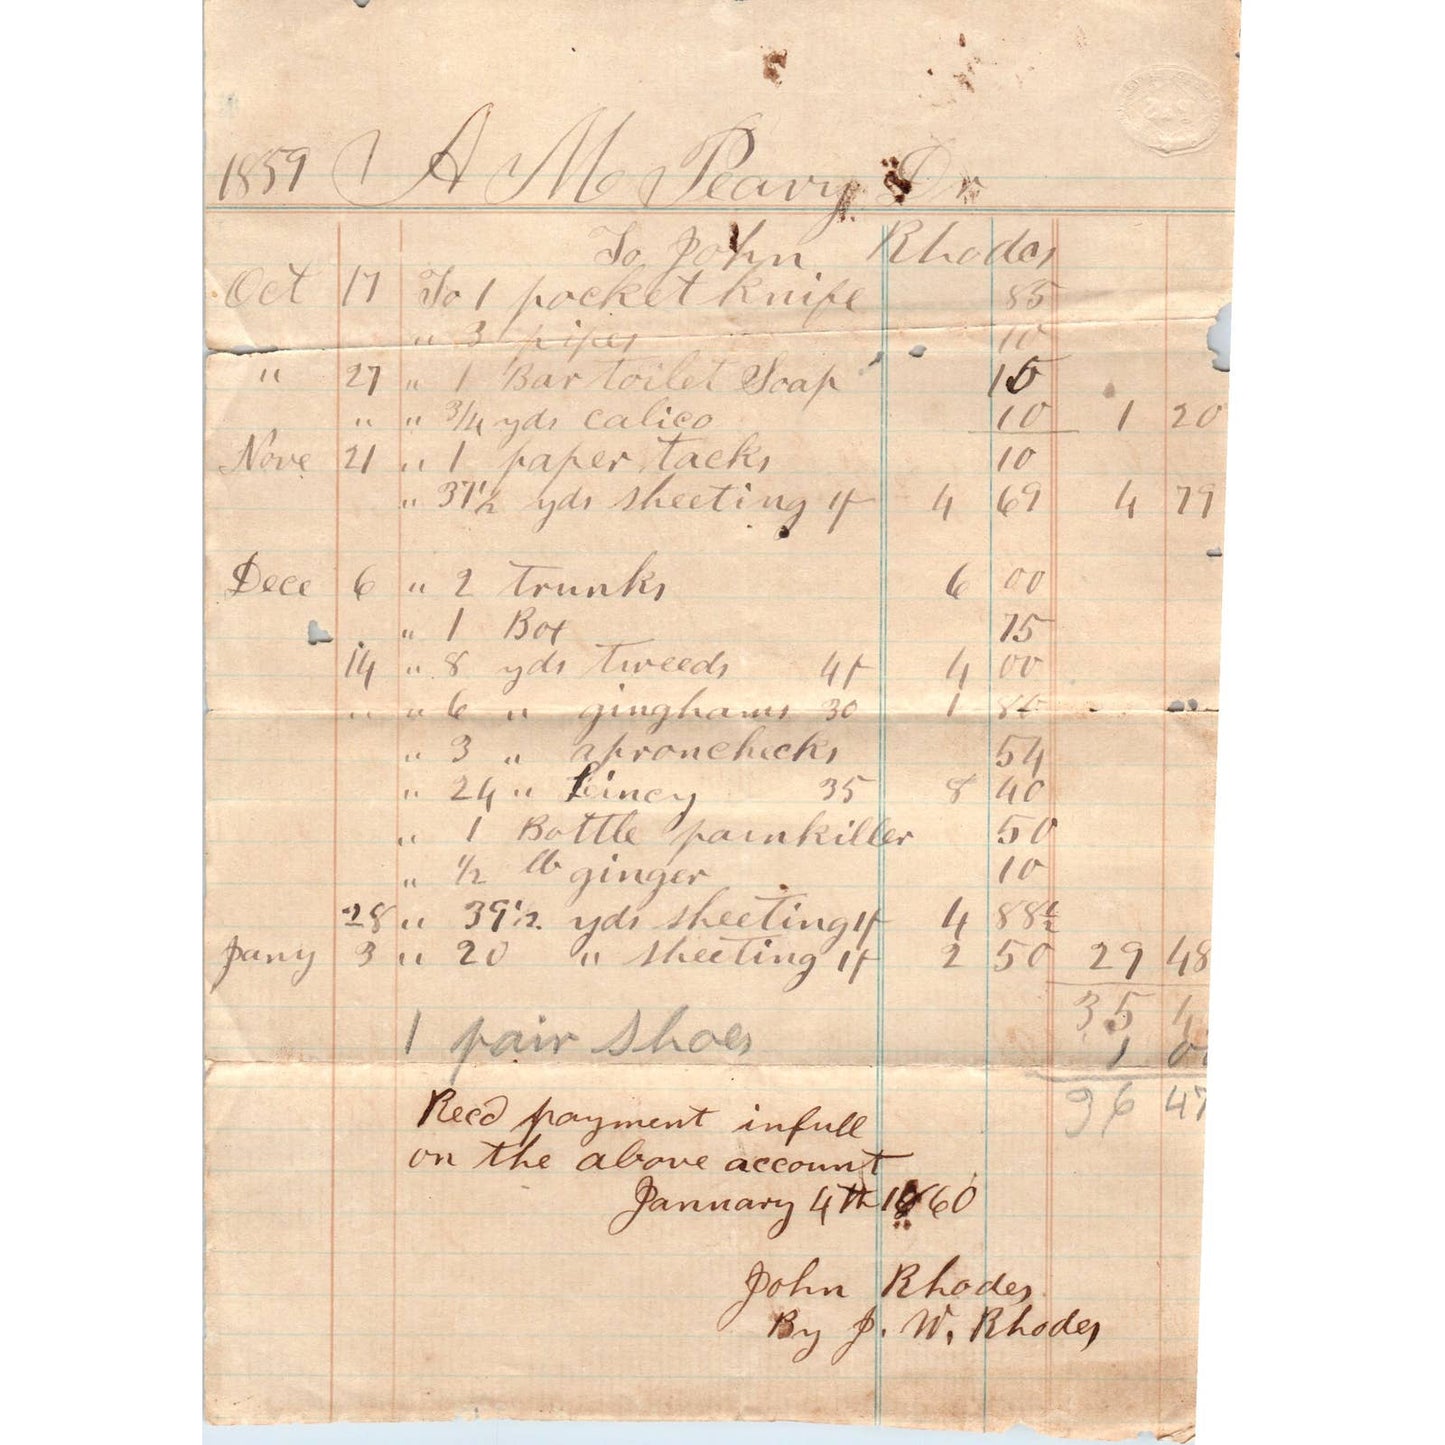 1859 A M Peavy Dr
To John Rhodes
Oct 17 To 1 pocket knife 85
" 3 pipes 10
" 27 " 1 Bar toilet Soap 15
" " 3/4 yds calico 10 1 20
Nove 21 " 1 paper tacks 10
" 37 1/2 yds sheeting 4 69 4 79
Dece 6 " 2 trunks 6 00
" 1 Box 75
14 " 8 yds tweeds 4 00
" " 6 " ginghams 30 1 80
" 3 " apronchecks 54
" 24 " Lincy 35 8 40
" 1 Bottle painkiller 50
" 1/2 lb ginger 10
28 " 39 1/2 yds sheeting 4 88
Jany 3 " 20 " sheeting 2 50 29 48
35
1 pair shoes 1
36 47
Recd payment infull
on the above account
January 4th 1860
John Rhodes
By J. W. Rhodes